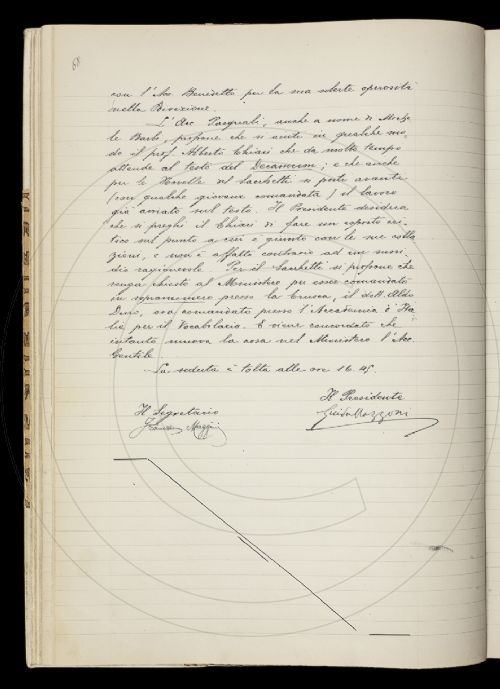 68
con l'Acc. Benedetto per la sua solerte operosità
nella Direzione.
L'Acc. Pasquali, anche a nome di Miche
le Barbi, propone che si aiuti in qualche mo-
do il prof. Alberto Chiari che da molto tempo
attende al testo del Decameron; e che anche
per le Novelle del Sacchetti si porti avanti
(con qualche giovane comandato) il lavoro
già avviato sul testo. Il Presidente desidera
che si preghi il Chiari di fare un esposto cri-
tico sul punto a cui è giunto con le sue colla
zioni, e non è affatto contrario ad un sussi-
dio ragionevole. Per il Sacchetti si propone che
venga chiesto al Ministero per esser comandato
in presso la Crusca, il dott. Aldo
Duro, ora comandato presso l'Accademia d'Ita
lia per il Vocabolario. E viene concordato che
intanto muova la cosa nel Ministero l'Acc.
Gentile.
La seduta è tolta alle ore 16.45.
Il Presidente
Guido Mazzoni
Il Segretario
Maggini